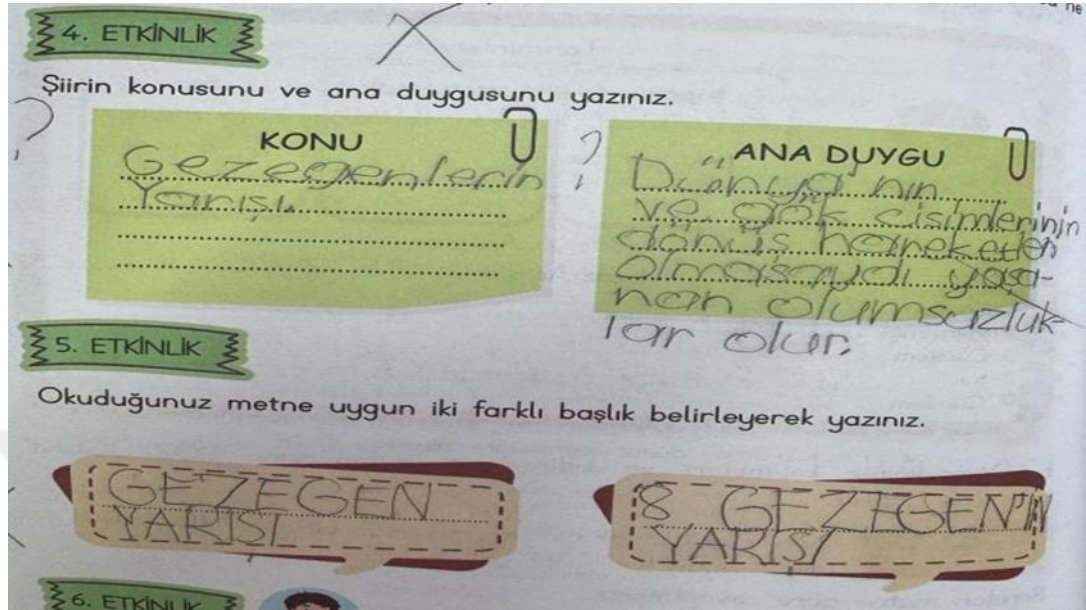 ne
4. ETKİNLİK
Şiirin konusunu ve ana duygusunu yazınız.
?
KONU
Gezegenlerin
Yarışı.
?
ANA DUYGU
Dünya'nın
ve gök cisimlerinin
dönüş hareketleri
olmasaydı yaşa-
nan olumsuzluk-
lar olur.
5. ETKİNLİK
Okuduğunuz metne uygun iki farklı başlık belirleyerek yazınız.
GEZEGEN
YARIŞI
8 GEZEGEN'İN
YARIŞI
6. ETKİNLİK